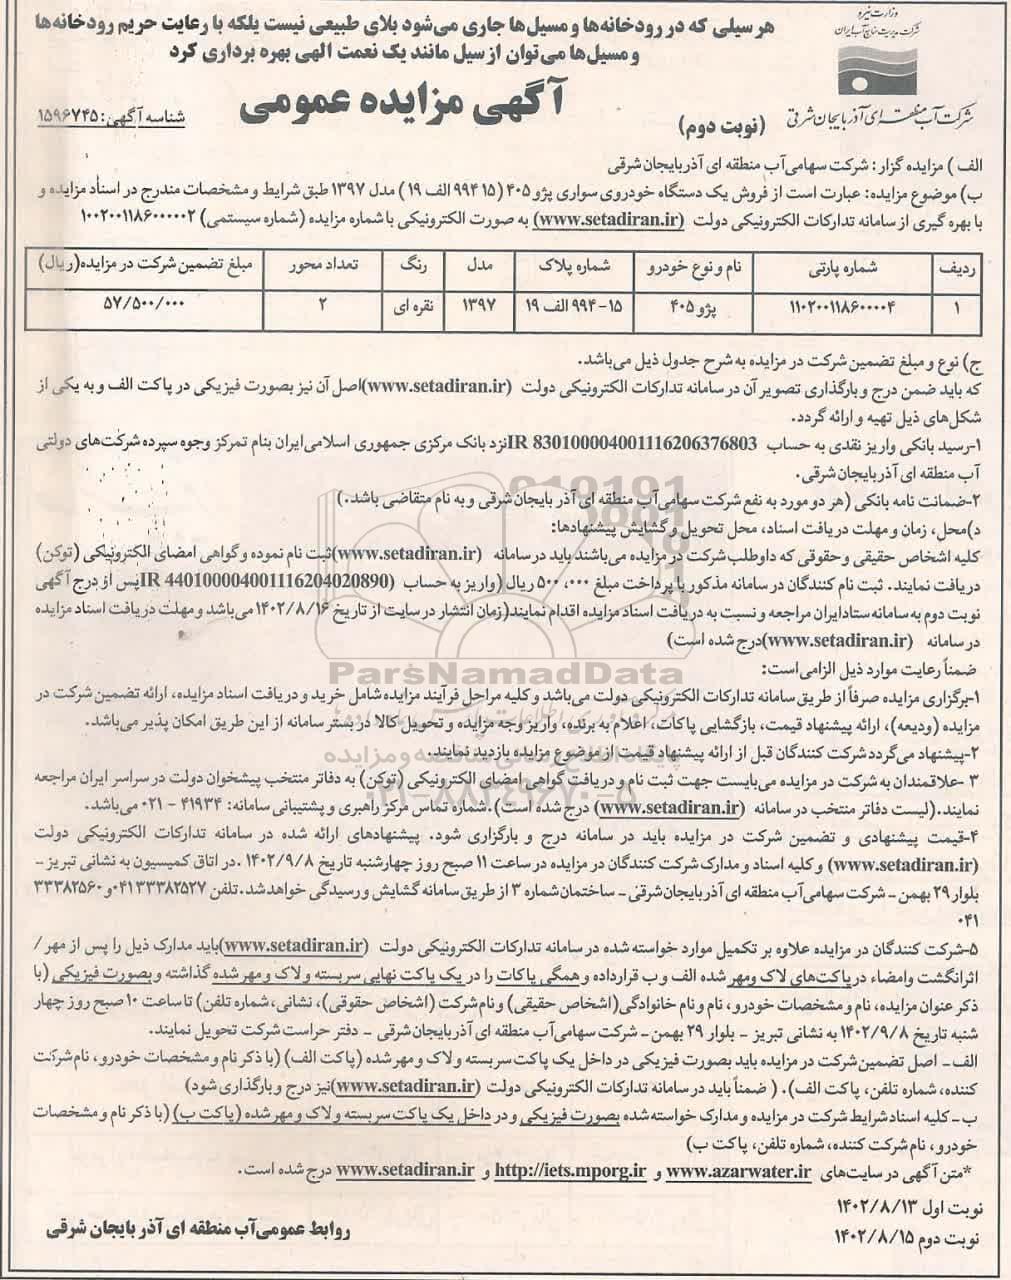 وزارت نیرو
شرکت مدیریت منابع آب ایران
شرکت آب منطقه ای آذربایجان شرقی
هر سیلی که در رودخانه‌ها و مسیل‌ها جاری می‌شود بلای طبیعی نیست بلکه با رعایت حریم رودخانه‌ها
و مسیل‌ها می‌توان از سیل مانند یک نعمت الهی بهره برداری کرد
آگهی مزایده عمومی
(نوبت دوم)
شناسه آگهی: ۱۵۹۶۷۴۵
الف ) مزایده گزار : شرکت سهامی آب منطقه ای آذربایجان شرقی
ب) موضوع مزایده: عبارت است از فروش یک دستگاه خودروی سواری پژو ۴۰۵ (۱۵ ۹۹۴ الف ۱۹ ) مدل ۱۳۹۷ طبق شرایط و مشخصات مندرج در اسناد مزایده و
با بهره گیری از سامانه تدارکات الکترونیکی دولت (www.setadiran.ir) به صورت الکترونیکی با شماره مزایده (شماره سیستمی) ۱۰۰۲۰۰۱۱۸۶۰۰۰۰۰۲
ردیف شماره پارتی نام و نوع خودرو شماره پلاک مدل رنگ تعداد محور مبلغ تضمین شرکت در مزایده(ریال)
۱ ۱۱۰۲۰۰۱۱۸۶۰۰۰۰۴ پژو ۴۰۵ ۱۵-۹۹۴ الف ۱۹ ۱۳۹۷ نقره ای ۲ ۵۷/۵۰۰/۰۰۰
ج) نوع و مبلغ تضمین شرکت در مزایده به شرح جدول ذیل می‌باشد.
که باید ضمن درج و بارگذاری تصویر آن در سامانه تدارکات الکترونیکی دولت (www.setadiran.ir)اصل آن نیز بصورت فیزیکی در پاکت الف و به یکی از
شکل‌های ذیل تهیه و ارائه گردد.
۱-رسید بانکی واریز نقدی به حساب IR 830100004001116206376803نزد بانک مرکزی جمهوری اسلامی ایران بنام تمرکز وجوه سپرده شرکت‌های دولتی
آب منطقه ای آذربایجان شرقی.
۲-ضمانت نامه بانکی (هر دو مورد به نفع شرکت سهامی آب منطقه ای آذربایجان شرقی و به نام متقاضی باشد.)
د)محل، زمان و مهلت دریافت اسناد، محل تحویل و گشایش پیشنهادها:
کلیه اشخاص حقیقی و حقوقی که داوطلب شرکت در مزایده می‌باشند باید در سامانه (www.setadiran.ir)ثبت نام نموده و گواهی امضای الکترونیکی (توکن)
دریافت نمایند. ثبت نام کنندگان در سامانه مذکور با پرداخت مبلغ ۵۰۰،۰۰۰ ریال (واریز به حساب IR 440100004001116204020890)پس از درج آگهی
نوبت دوم به سامانه ستاد ایران مراجعه و نسبت به دریافت اسناد مزایده اقدام نمایند(زمان انتشار در سایت از تاریخ ۱۴۰۲/۸/۱۶ می‌باشد و مهلت دریافت اسناد مزایده
در سامانه (www.setadiran.ir)درج شده است)
ضمناً رعایت موارد ذیل الزامی است:
۱-برگزاری مزایده صرفاً از طریق سامانه تدارکات الکترونیکی دولت می‌باشد و کلیه مراحل فرآیند مزایده شامل خرید و دریافت اسناد مزایده، ارائه تضمین شرکت در
مزایده (ودیعه)، ارائه پیشنهاد قیمت، بازگشایی پاکات، اعلام به برنده، واریز وجه مزایده و تحویل کالا در بستر سامانه از این طریق امکان پذیر می‌باشد.
۲-پیشنهاد می‌گردد شرکت کنندگان قبل از ارائه پیشنهاد قیمت از موضوع مزایده بازدید نمایند.
۳-علاقمندان به شرکت در مزایده می‌بایست جهت ثبت نام و دریافت گواهی امضای الکترونیکی (توکن) به دفاتر منتخب پیشخوان دولت در سراسر ایران مراجعه
نمایند.(لیست دفاتر منتخب در سامانه (www.setadiran.ir) درج شده است).شماره تماس مرکز راهبری و پشتیبانی سامانه: ۴۱۹۳۴ - ۰۲۱ می‌باشد.
۴-قیمت پیشنهادی و تضمین شرکت در مزایده باید در سامانه درج و بارگزاری شود. پیشنهادهای ارائه شده در سامانه تدارکات الکترونیکی دولت
(www.setadiran.ir) و کلیه اسناد و مدارک شرکت کنندگان در مزایده در ساعت ۱۱ صبح روز چهارشنبه تاریخ ۱۴۰۲/۹/۸ .در اتاق کمیسیون به نشانی تبریز -
بلوار ۲۹ بهمن - شرکت سهامی آب منطقه ای آذربایجان شرقی - ساختمان شماره ۳ از طریق سامانه گشایش و رسیدگی خواهد شد.تلفن ۰۴۱۳۳۳۸۲۵۲۷ و ۳۳۳۸۲۵۶۰
۰۴۱
۵-شرکت کنندگان در مزایده علاوه بر تکمیل موارد خواسته شده در سامانه تدارکات الکترونیکی دولت (www.setadiran.ir)باید مدارک ذیل را پس از مهر /
اثر انگشت و امضاء در پاکت‌های لاک و مهر شده الف و ب قرارداده و همگی پاکات را در یک پاکت نهایی سربسته و لاک و مهر شده گذاشته و بصورت فیزیکی (با
ذکر عنوان مزایده، نام و مشخصات خودرو، نام و نام خانوادگی(اشخاص حقیقی) و نام شرکت (اشخاص حقوقی)، نشانی، شماره تلفن) تا ساعت ۱۰ صبح روز چهار
شنبه تاریخ ۱۴۰۲/۹/۸ به نشانی تبریز - بلوار ۲۹ بهمن - شرکت سهامی آب منطقه ای آذربایجان شرقی - دفتر حراست شرکت تحویل نمایند.
الف - اصل تضمین شرکت در مزایده باید بصورت فیزیکی در داخل یک پاکت سربسته و لاک و مهر شده (پاکت الف) (با ذکر نام و مشخصات خودرو، نام شرکت
کننده، شماره تلفن، پاکت الف). ( ضمناً باید در سامانه تدارکات الکترونیکی دولت (www.setadiran.ir)نیز درج و بارگذاری شود)
ب - کلیه اسناد شرایط شرکت در مزایده و مدارک خواسته شده بصورت فیزیکی و در داخل یک پاکت سربسته و لاک و مهر شده (پاکت ب) (با ذکر نام و مشخصات
خودرو، نام شرکت کننده، شماره تلفن، پاکت ب)
*متن آگهی در سایت‌های www.azarwater.ir و http://iets.mporg.ir و www.setadiran.ir درج شده است.
نوبت اول ۱۴۰۲/۸/۱۳
نوبت دوم ۱۴۰۲/۸/۱۵
روابط عمومی آب منطقه ای آذربایجان شرقی
ParsNamadData
پایگاه اطلاع رسانی مناقصه و مزایده
۰۲۱-۸۸۳۴۹۶۷۰-۵